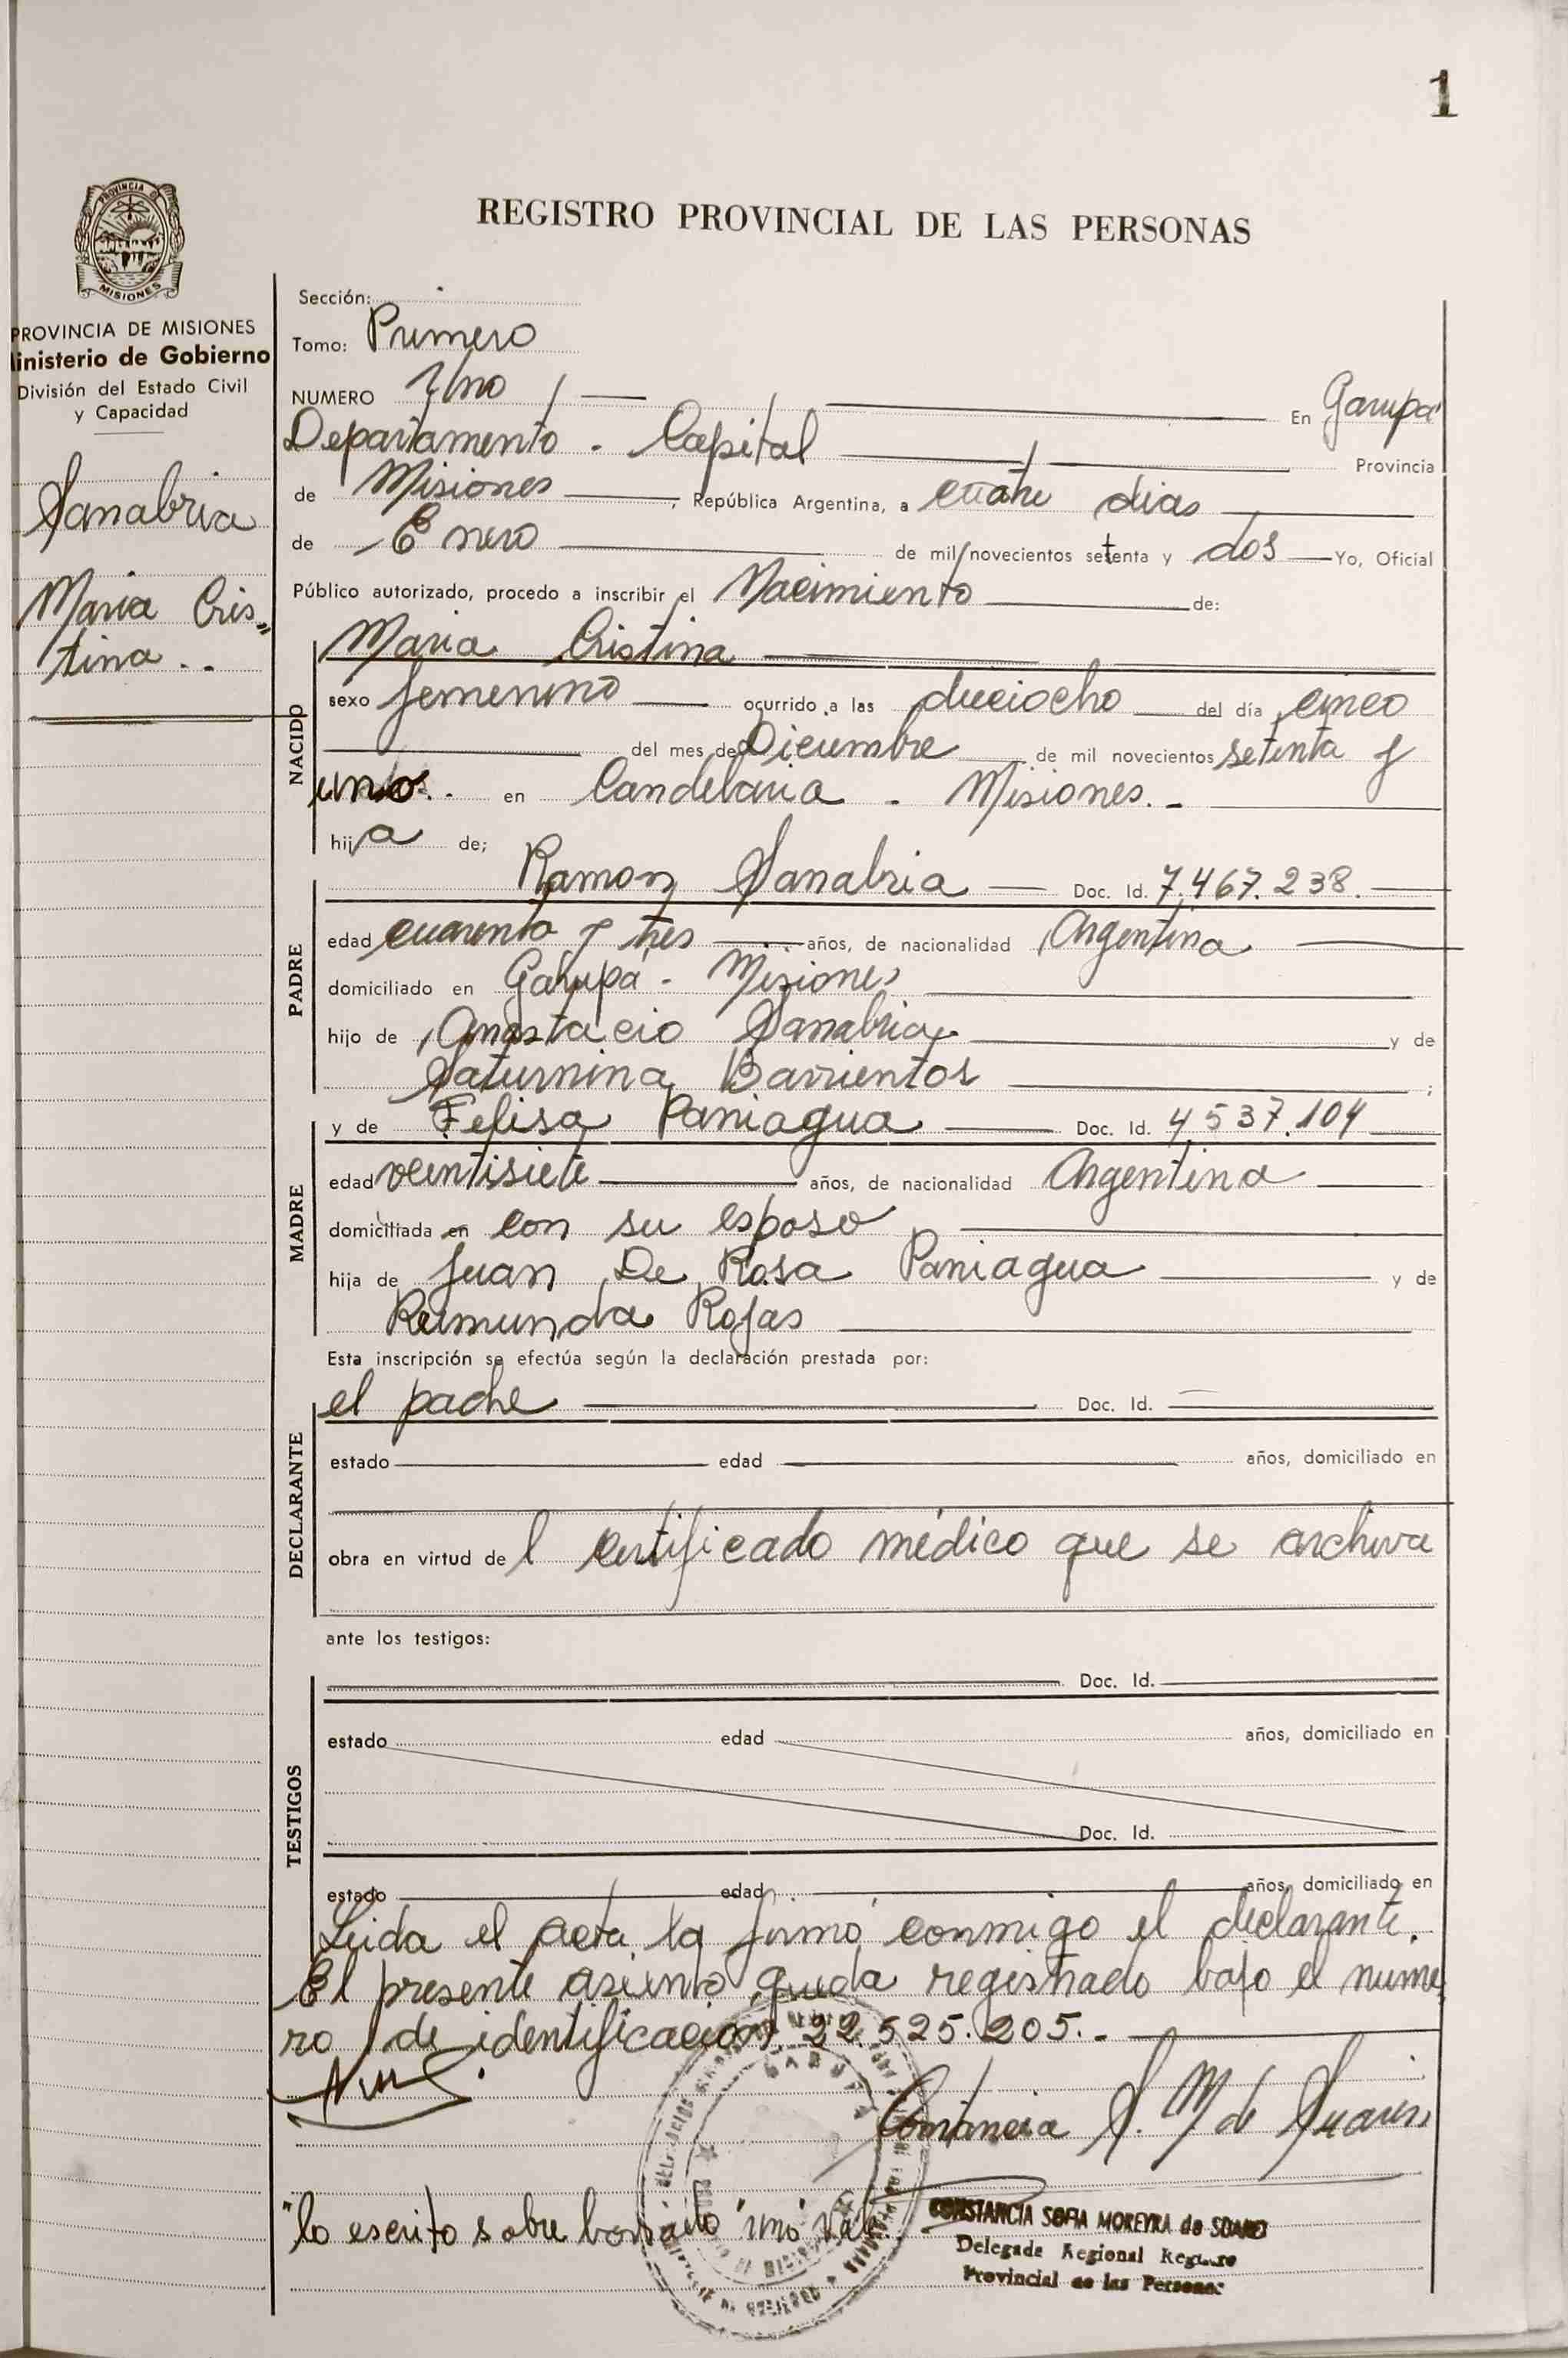 1
PROVINCIA DE
MISIONES
PROVINCIA DE MISIONES
Ministerio de Gobierno
División del Estado Civil
y Capacidad
Sanabria
Maria Cris=
tina ..
REGISTRO PROVINCIAL DE LAS PERSONAS
Sección:
Tomo: Primero
NUMERO Uno En Garupá
Departamento - Capital Provincia
de Misiones, República Argentina, a cuatro dias
de Enero de mil novecientos setenta y dos Yo, Oficial
Público autorizado, procedo a inscribir el Nacimiento de:
NACIDO
Maria Cristina
sexo femenino ocurrido a las dieciocho del día cinco
del mes de Diciembre de mil novecientos setenta y
uno.- en Candelaria - Misiones.-
hija de;
PADRE
Ramon Sanabria Doc. Id. 7.467.238.
edad cuarenta y tres años, de nacionalidad Argentina
domiciliado en Garupá - Misiones
hijo de Anastacio Sanabria y de
Saturnina Barrientos ;
MADRE
y de Felisa Paniagua Doc. Id. 4.537.104
edad veintisiete años, de nacionalidad Argentina
domiciliada en con su esposo
hija de Juan De Rosa Paniagua y de
Reimunda Rojas
Esta inscripción se efectúa según la declaración prestada por:
DECLARANTE
el padre Doc. Id.
estado edad años, domiciliado en
obra en virtud del certificado médico que se archiva
ante los testigos:
TESTIGOS
Doc. Id.
estado edad años, domiciliado en
Doc. Id.
estado edad años, domiciliado en
Leida el acta, la firmó conmigo el declarante.
El presente asiento queda registrado bajo el nume
ro de identificación 22.525.205.-
Constancia S. M de Suarez
"lo escrito sobre borrado "uno" vale.
CONSTANCIA SOFIA MOREYRA de SUAREZ
Delegada Regional Registro
Provincial de las Personas
GARUPA